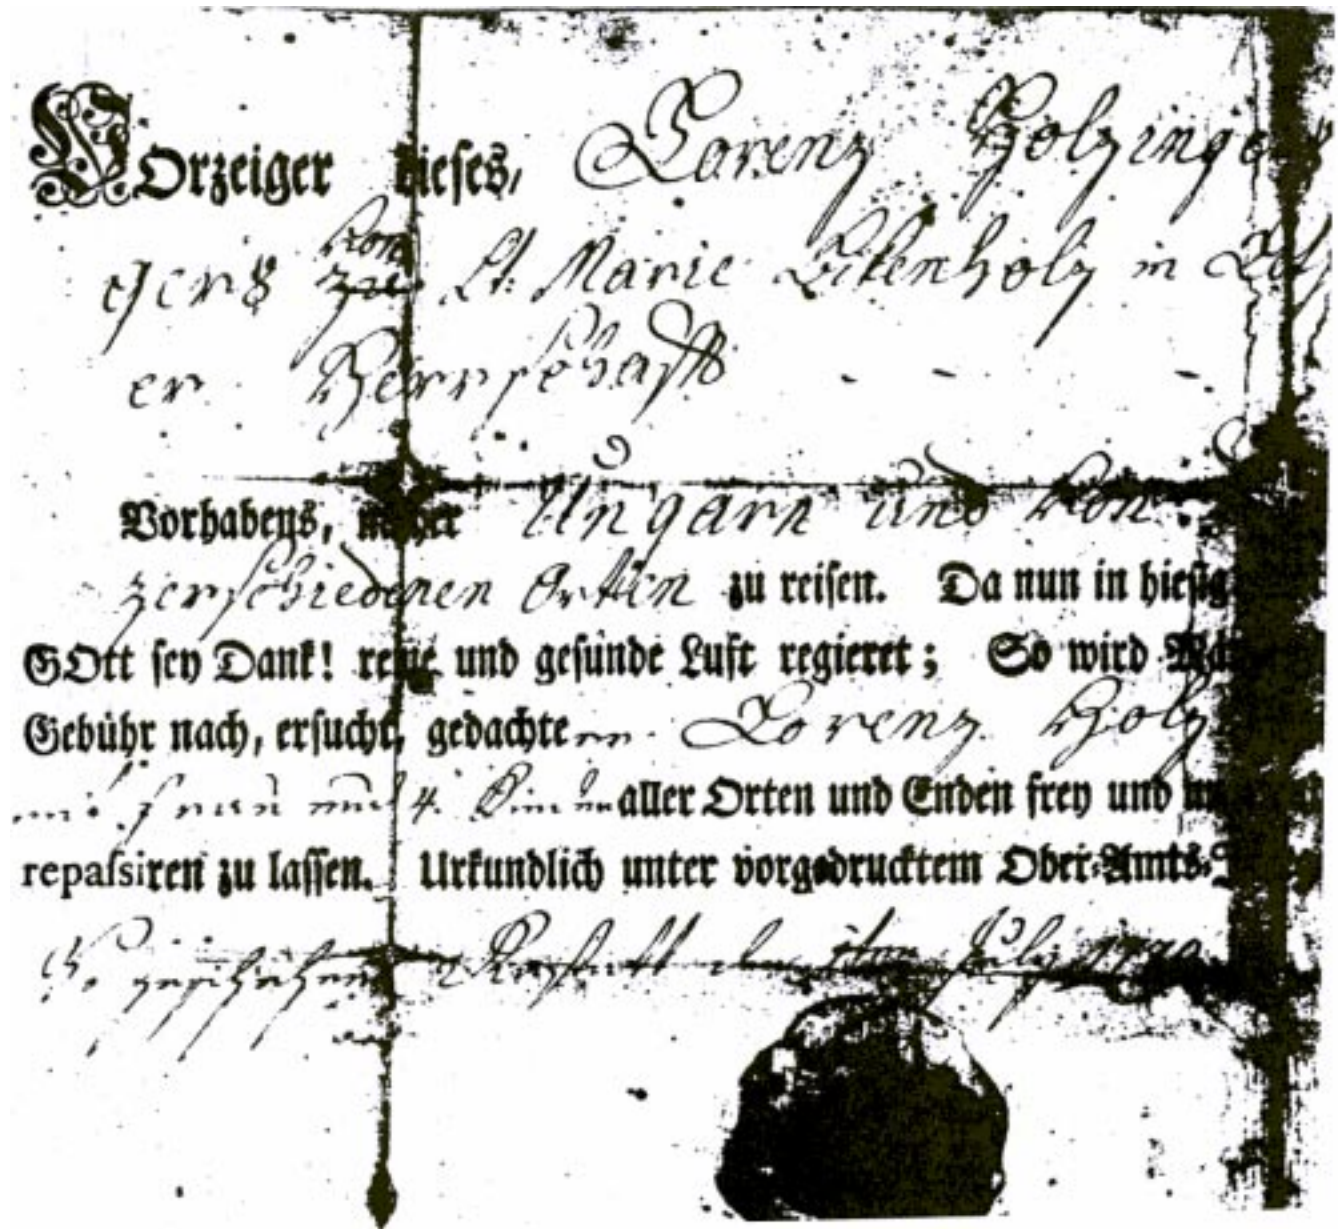 VOrzeiger dieses, Lorenz Holzinger
gers von St. Marie Eikenholz in
er Herrschafft - - -
Vorhabens, nacher Ungarn und von
zerschiedenen Orten zu reisen. Da nun in hiesig
GOtt sey Dank! reine und gesunde Luft regieret; So wird
Gebühr nach, ersucht, gedachten Lorenz Holz
und 4. aller Orten und Enden frey und
repassiren zu lassen. Urkundlich unter vorgedrucktem Ober-Amts-
So geschehen Rastatt den July